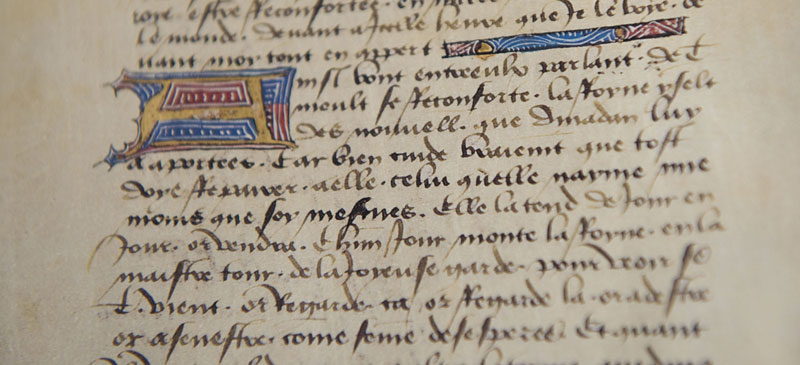 le monde. devant a icelle heure que Je le voie. de
uant moy tout en appert
Ainsi vont entreulx parlant. de T
moult se Reconforte. la Royne yselt
des nouuell. que dinadan luy
a aportees. Car bien cuide vraiemt que tost
doye Reparer. a elle. celui quelle nayme mie
moins que soy mesmes. Elle latend de Jour en
Jour. or vendra. Chun Jour monte la Royne. en la
maistre tour. de la Joyeuse garde. pour veoir se
T. vient. or Regarde. ca, or Regarde la. or a destre
or a senestre. come feme desesperee. Et quant